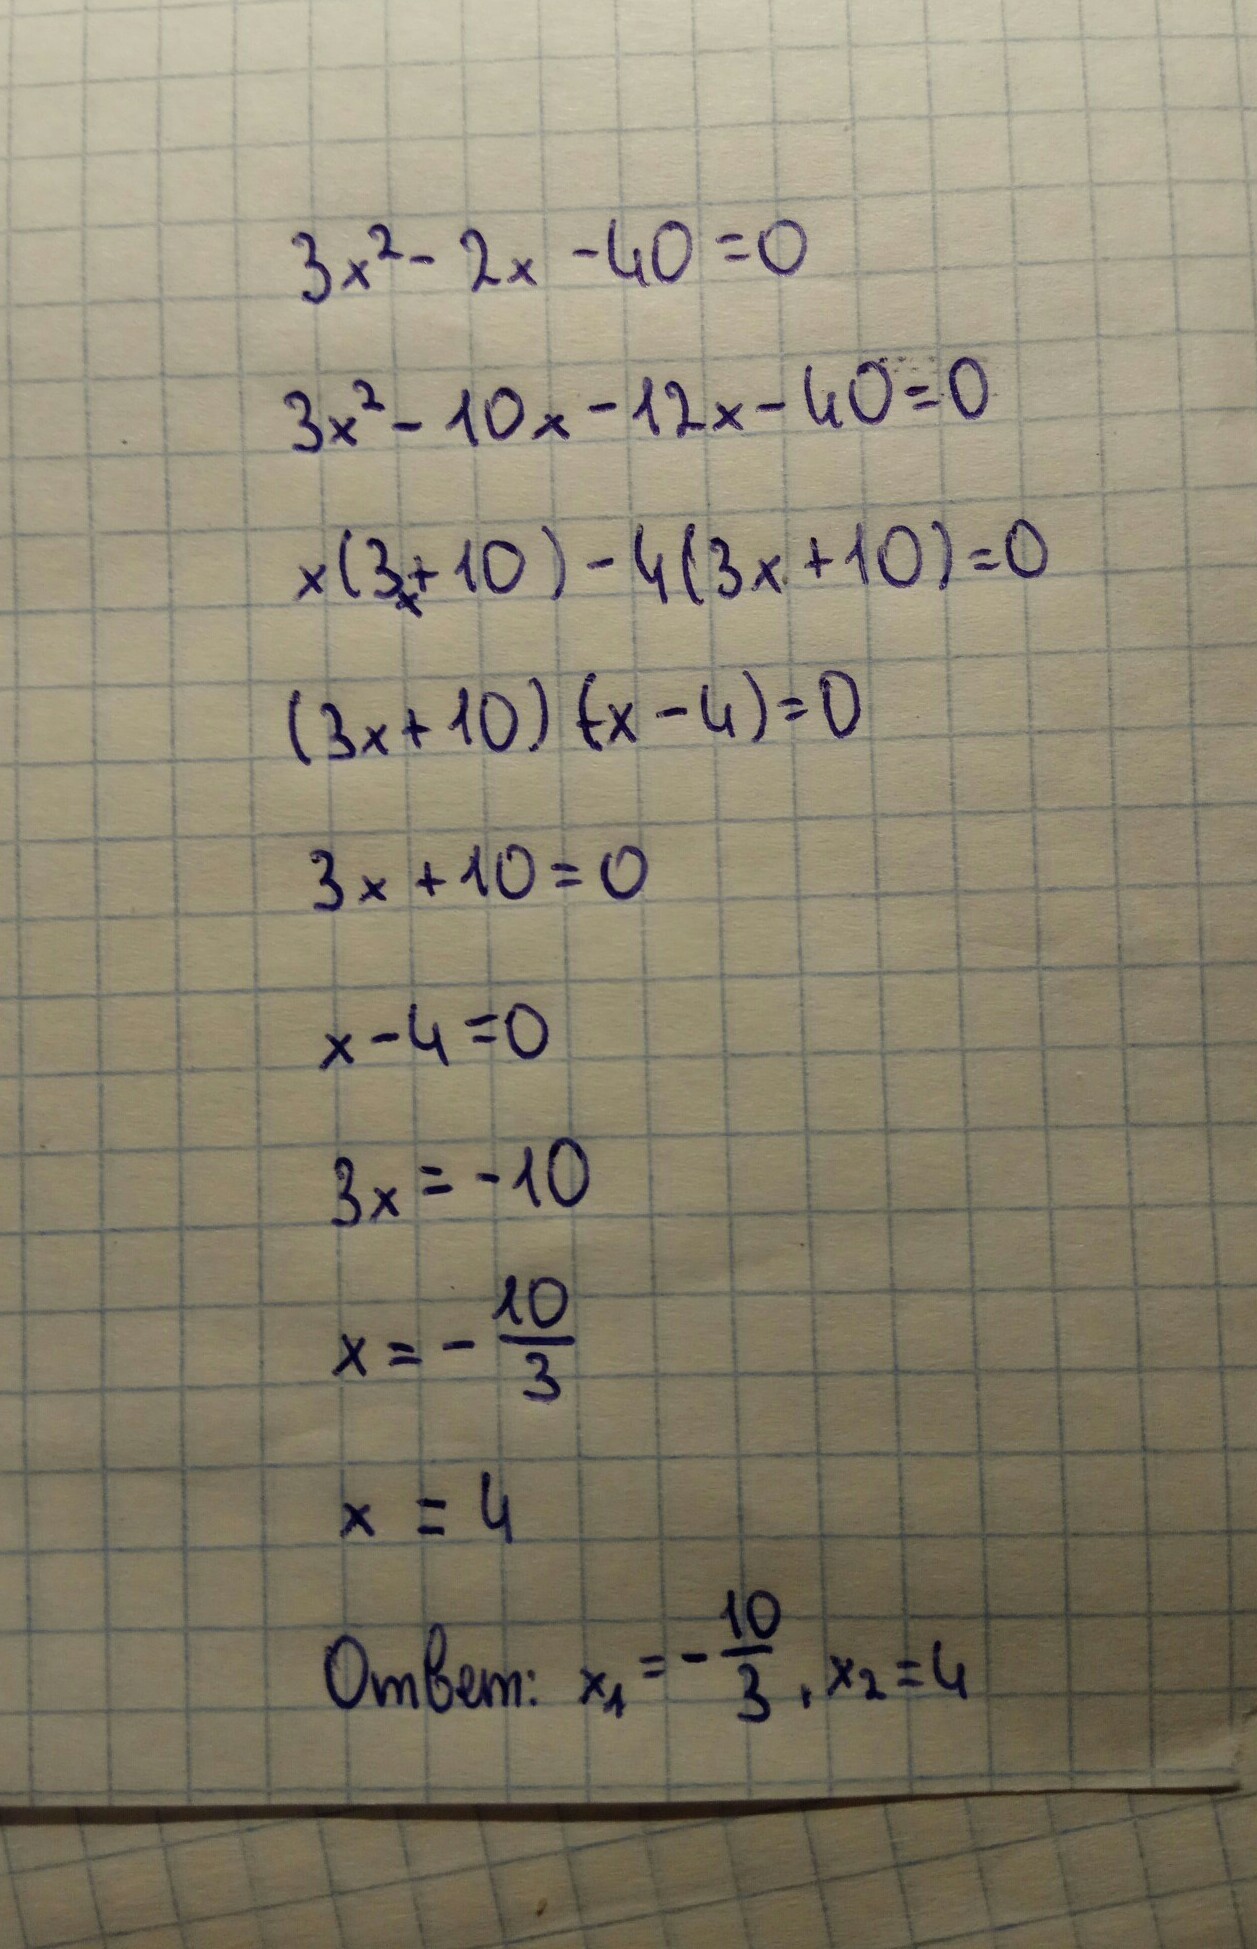 3x² - 2x - 40 = 0
3x² - 10x - 12x - 40 = 0
x(3x + 10) - 4(3x + 10) = 0
(3x + 10)(x - 4) = 0
3x + 10 = 0
x - 4 = 0
3x = -10
x = - 10/3
x = 4
Ответ: x₁ = - 10/3, x₂ = 4